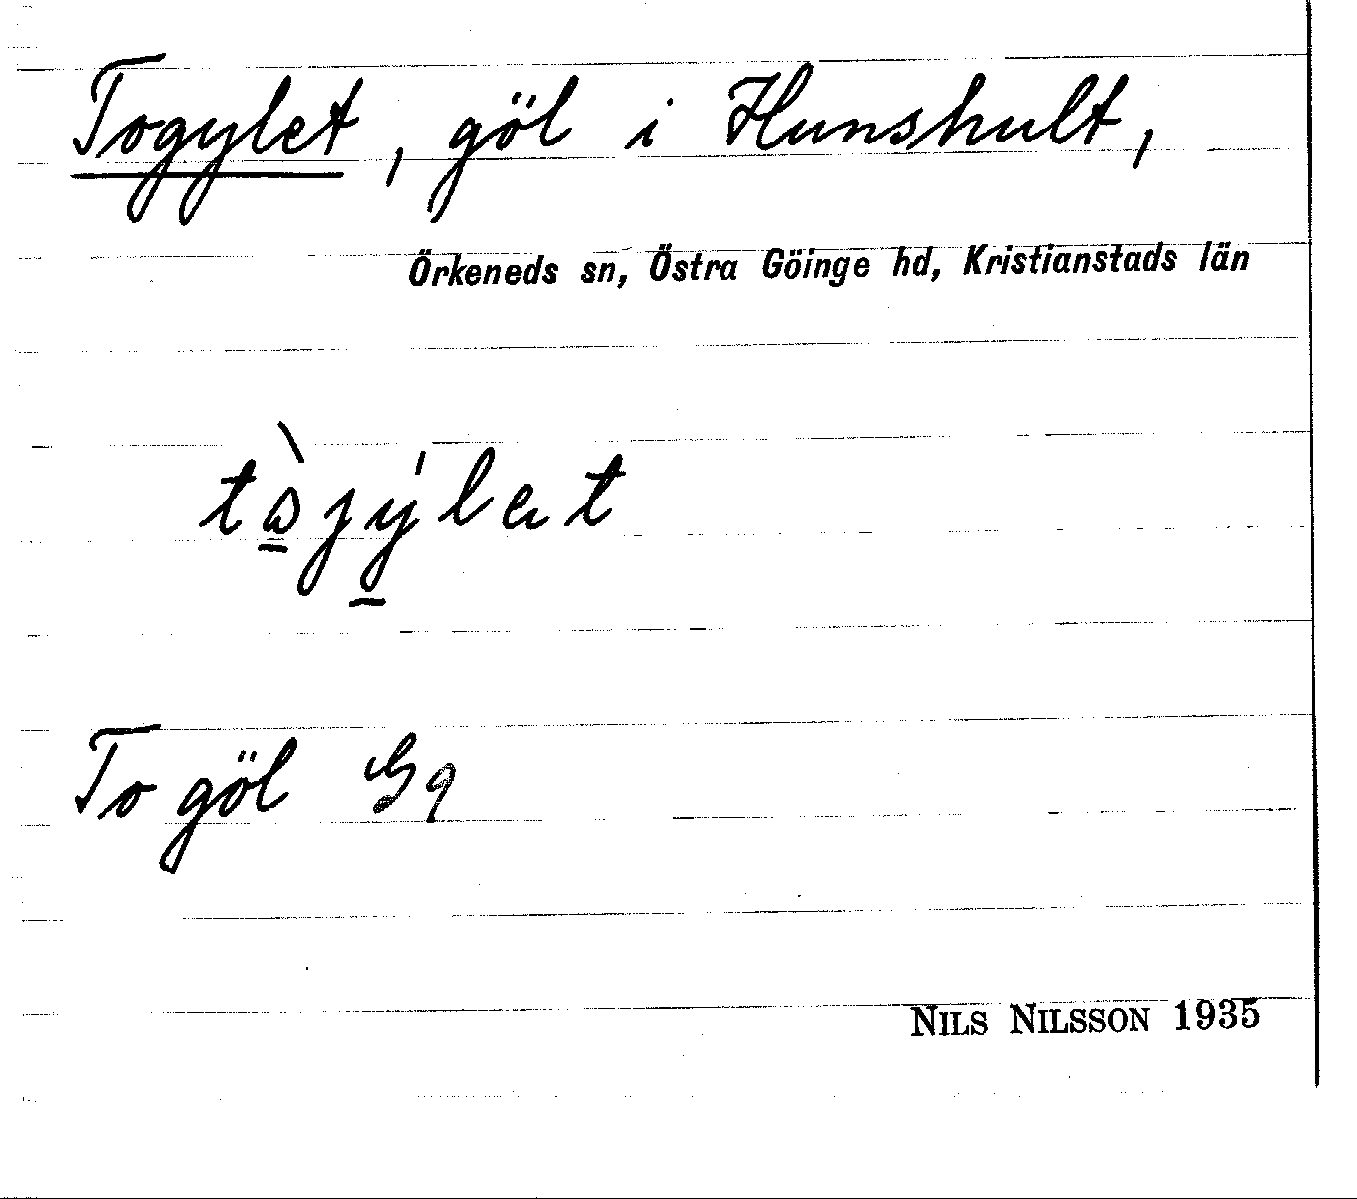 Togylet, göl i Hunshult,
Örkeneds sn, Östra Göinge hd, Kristianstads län
Togöl Gq
NILS NILSSON 1935